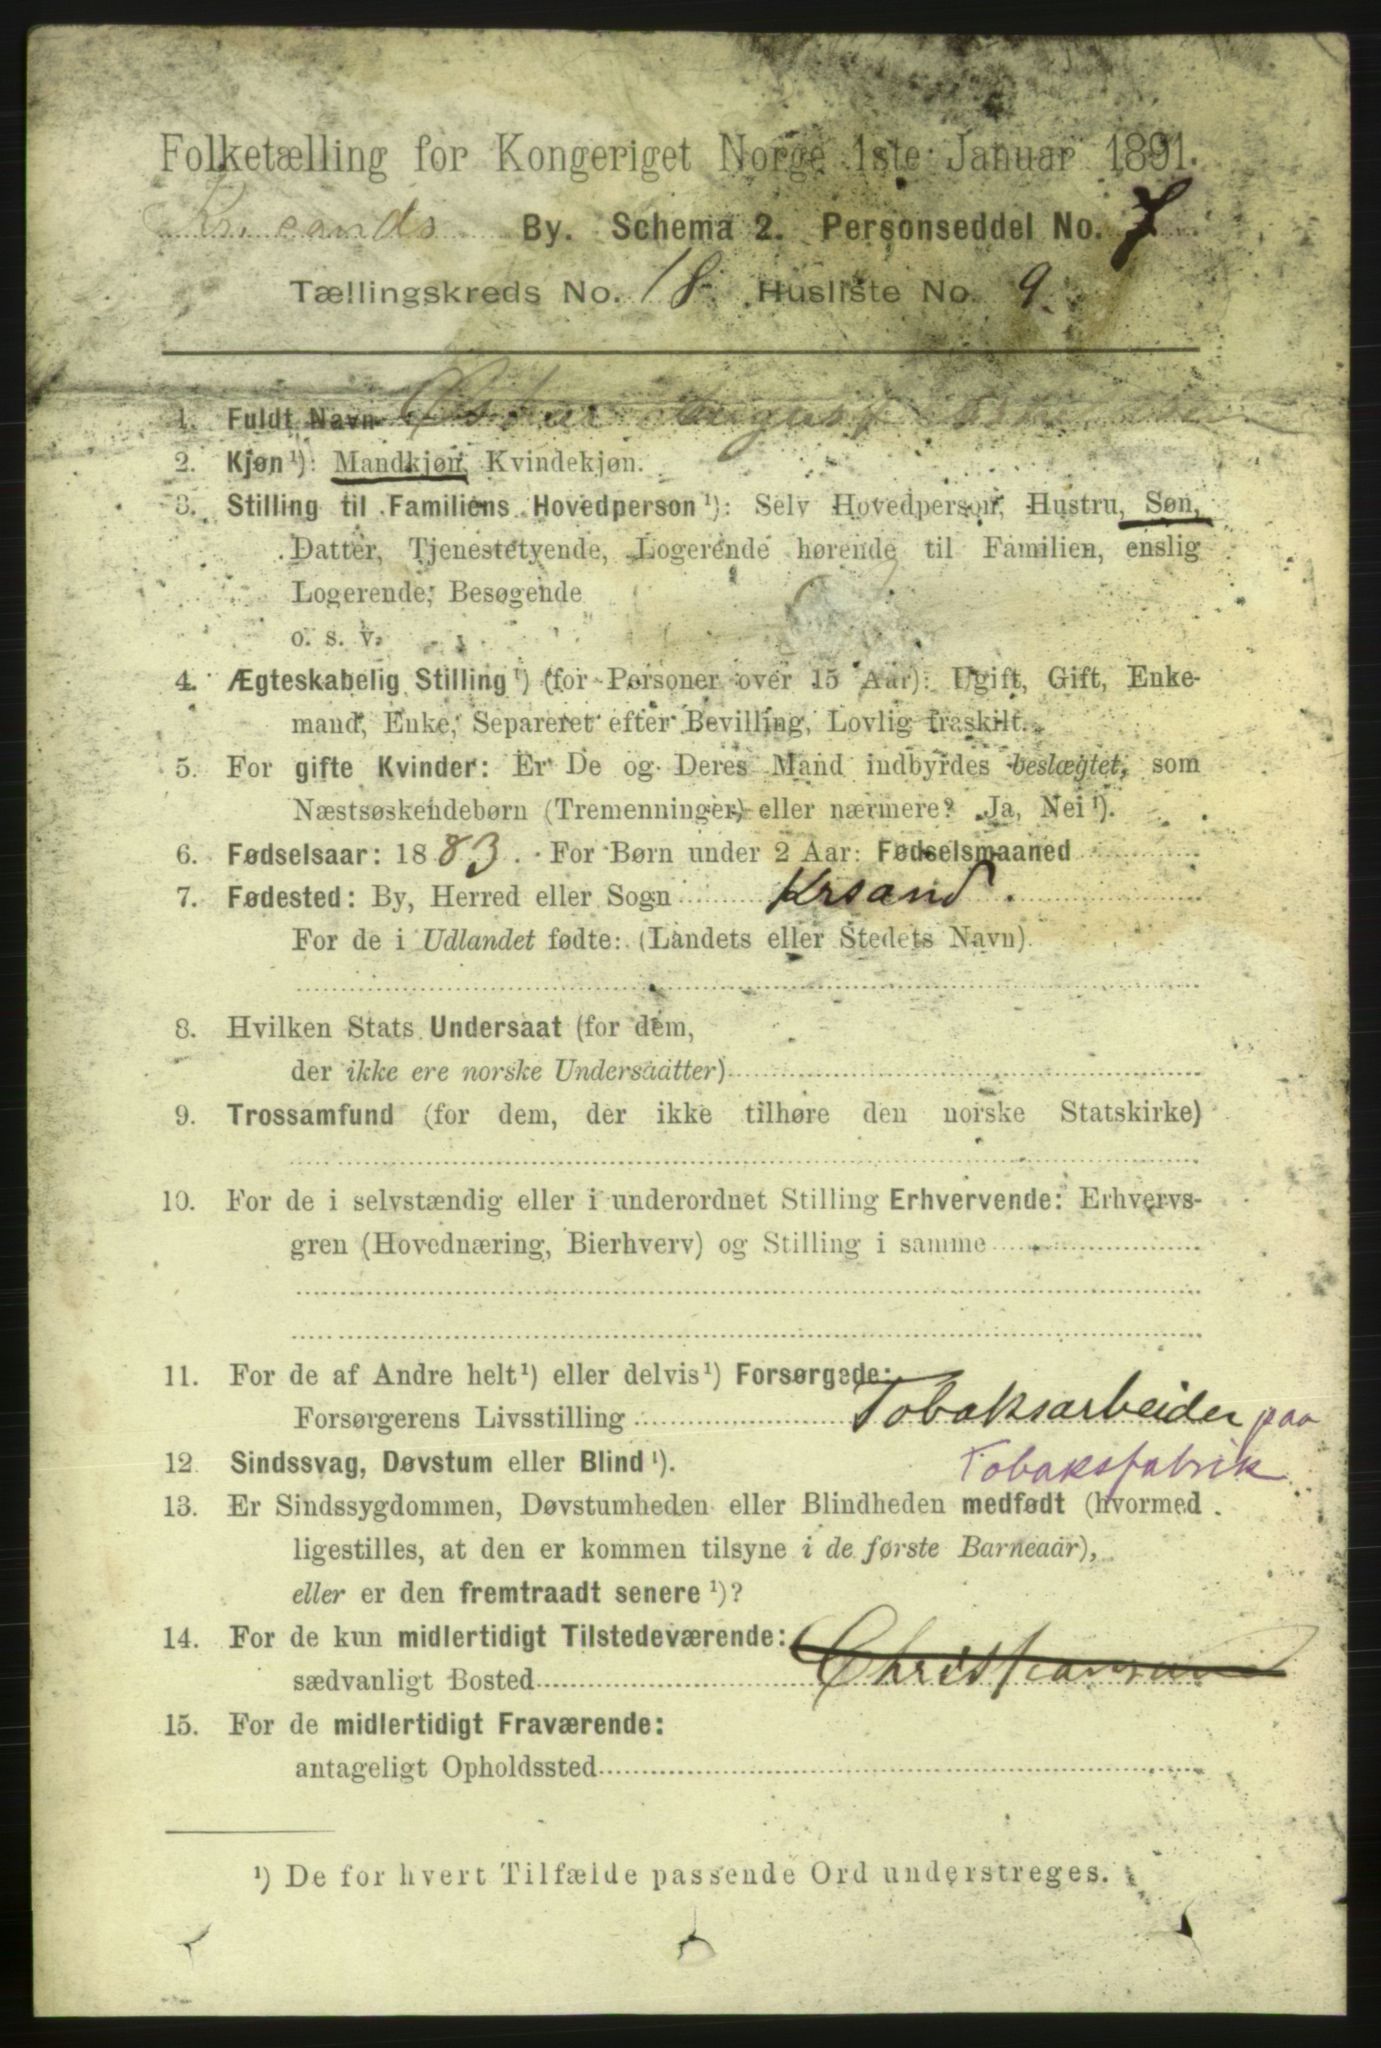 Folketælling for Kongeriget Norge 1ste Januar 1891.
By. Schema 2. Personseddel No. 7
Tællingskreds No. 18 Husliste No. 9.
1. Fuldt Navn Oskar August
2. Kjøn ¹): Mandkjøn, Kvindekjøn.
3. Stilling til Familiens Hovedperson ¹): Selv Hovedperson, Hustru, Søn,
Datter, Tjenestetyende, Logerende hørende til Familien, enslig
Logerende, Besøgende
o. s. v.
4. Ægteskabelig Stilling ¹) (for Personer over 15 Aar): Ugift, Gift, Enke-
mand, Enke, Separeret efter Bevilling, Lovlig fraskilt.
5. For gifte Kvinder: Er De og Deres Mand indbyrdes beslægtet, som
Næstsøskendebørn (Tremenninger) eller nærmere? Ja, Nei ¹).
6. Fødselsaar: 1883. For Børn under 2 Aar: Fødselsmaaned
7. Fødested: By, Herred eller Sogn Krsand.
For de i Udlandet fødte: (Landets eller Stedets Navn).
8. Hvilken Stats Undersaat (for dem,
der ikke ere norske Undersaatter)
9. Trossamfund (for dem, der ikke tilhøre den norske Statskirke)
10. For de i selvstændig eller i underordnet Stilling Erhvervende: Erhvervs-
gren (Hovednæring, Bierhverv) og Stilling i samme
11. For de af Andre helt ¹) eller delvis ¹) Forsørgede:
Forsørgerens Livsstilling Tobaksarbeider paa
12. Sindssvag, Døvstum eller Blind ¹). Tobaksfabrik
13. Er Sindssygdommen, Døvstumheden eller Blindheden medfødt (hvormed
ligestilles, at den er kommen tilsyne i de første Barneaar),
eller er den fremtraadt senere ¹)?
14. For de kun midlertidigt Tilstedeværende:
sædvanligt Bosted Christiansand
15. For de midlertidigt Fraværende:
antageligt Opholdssted
¹) De for hvert Tilfælde passende Ord understreges.